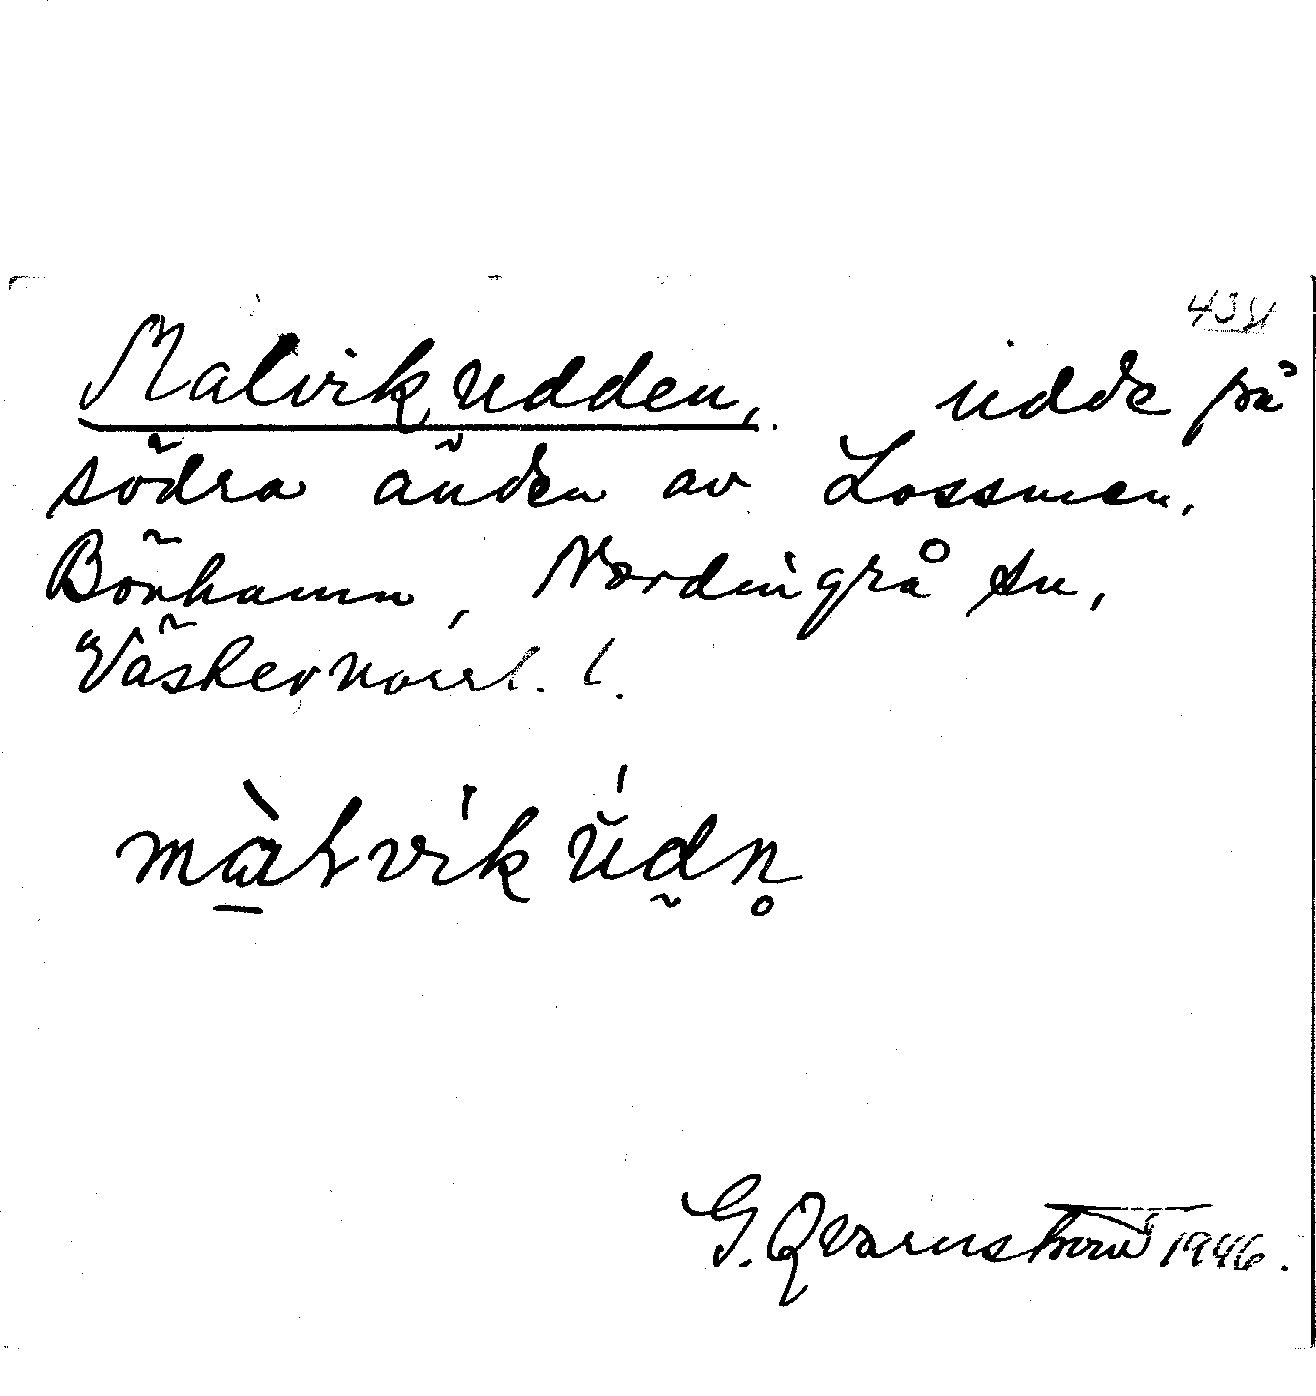 Malvikudden, udde på
södra änden av Lossmen.
Bönhamn, Nordingrå sn,
Västernorrl. l.
G. Qvarnström 1946.